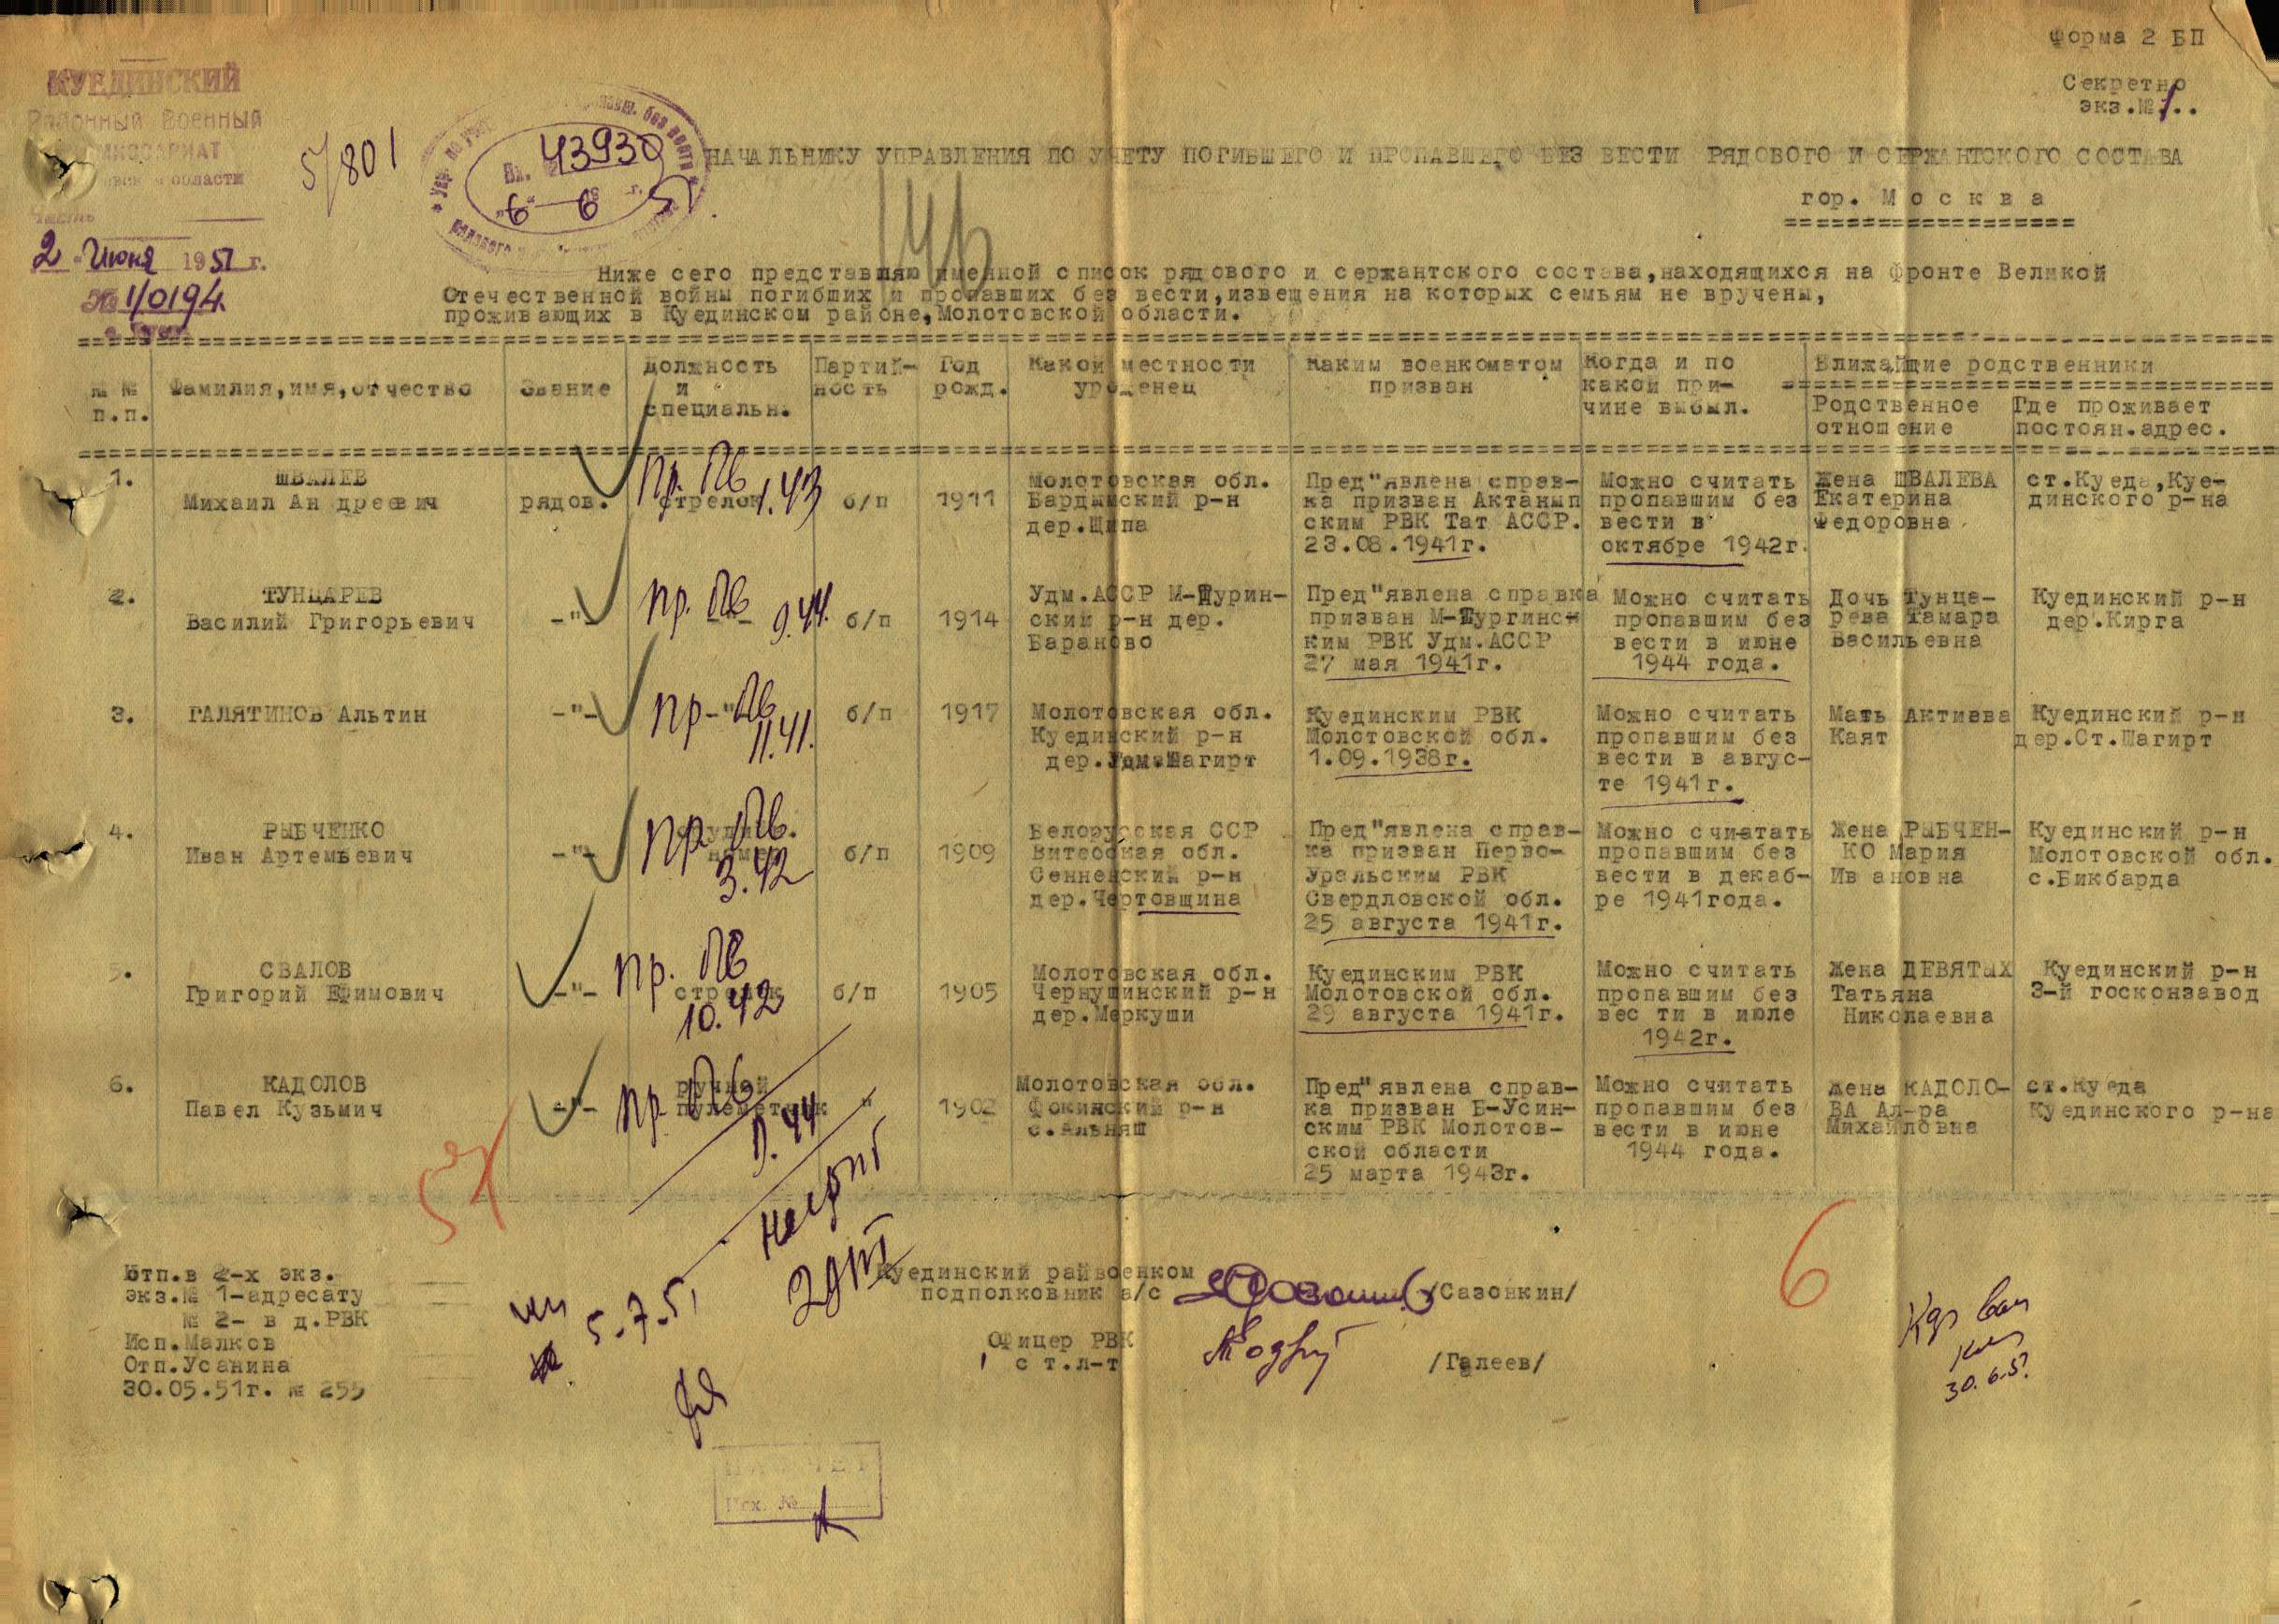 Форма 2 БП
Секретно
экз.№ 1..
КУЕДИНСКИЙ
Районный Военный
КОМИССАРИАТ
области
Часть
2 " Июня 1951 г.
№ 1/0194
5/801
Вх. 43930
"6" 6 51
НАЧАЛЬНИКУ УПРАВЛЕНИЯ ПО УЧЕТУ ПОГИБШЕГО И ПРОПАВШЕГО БЕЗ ВЕСТИ РЯДОВОГО И СЕРЖАНТСКОГО СОСТАВА
гор. Москва
Ниже сего представляю именной список рядового и сержантского состава,находящихся на фронте Великой
Отечественной войны погибших и пропавших без вести,извещения на которых семьям не вручены,
проживающих в Куединском районе,Молотовской области.
№ № п.п.
Фамилия,имя,отчество
Звание
Должность и специальн.
Партий-ность
Год рожд.
Какой местности уроженец
Каким военкоматом призван
Когда и по какой при-чине выбыл.
Ближайщие родственники
Родственное отношение
Где проживает постоян.адрес.
1.
ШВАЛЕВ
Михаил Ан дреевич
рядов.
стрелок
Пр. Пв 1.43
б/п
1911
Молотовская обл.
Бардымский р-н
дер.Щипа
Пред"явлена справ-
ка призван Актанып
ским РВК Тат АССР.
23.08.1941г.
Можно считать
пропавшим без
вести в
октябре 1942г.
Жена ШВАЛЕВА
Екатерина
Федоровна
ст.Куеда,Куе-
динского р-на
2.
ТУНЦАРЕВ
Василий Григорьевич
-"-
-"-
пр. Пв 9.44.
б/п
1914
Удм.АССР М-Пурин-
ский р-н дер.
Бараново
Пред"явлена справка
призван М-Пургинс-
ким РВК Удм.АССР
27 мая 1941г.
Можно считать
пропавшим без
вести в июне
1944 года.
Дочь Тунца-
рева Тамара
Васильевна
Куединский р-н
дер.Кирга
3.
ГАЛЯТИНОВ Альтин
-"-
-"-
пр Пв 11.41.
б/п
1917
Молотовская обл.
Куединский р-н
дер.Удм.Шагирт
Куединским РВК
Молотовской обл.
1.09.1938г.
Можно считать
пропавшим без
вести в авгус-
те 1941г.
Мать Актиева
Каят
Куединский р-н
дер.Ст.Шагирт
4.
РЫБЧЕНКО
Иван Артемьевич
-"-
пр. Пв. 3.42
б/п
1909
Белорусская ССР
Витебская обл.
Сенненский р-н
дер.Чертовщина
Пред"явлена справ-
ка призван Перво-
Уральским РВК
Свердловской обл.
25 августа 1941г.
Можно считатать
пропавшим без
вести в декаб-
ре 1941года.
Жена РЫБЧЕН-
КО Мария
Ив ановна
Куединский р-н
Молотовской обл.
с.Бикбарда
5.
СВАЛОВ
Григорий Ефимович
-"-
стрелок
пр. Пв 10.42
б/п
1905
Молотовская обл.
Чернушинский р-н
дер.Меркуши
Куединским РВК
Молотовской обл.
29 августа 1941г.
Можно считать
пропавшим без
вес ти в июле
1942г.
Жена ДЕВЯТЫХ
Татьяна
Николаевна
Куединский р-н
3-й госконзавод
6.
КАДОЛОВ
Павел Кузьмич
-"-
ручной
пулеметчик
пр. Пв
"
1902
Молотовская обл.
Фокинский р-н
с.Альняш
Пред"явлена справ-
ка призван Б-Усин-
ским РВК Молотов-
ской области
25 марта 1943г.
Можно считать
пропавшим без
вести в июне
1944 года.
Жена КАДОЛО-
ВА Ал-ра
Михайловна
ст.Куеда
Куединского р-на
6
Отп.в 2-х экз.
экз.№ 1-адресату
№ 2- в д.РВК
Исп.Малков
Отп.Усанина
30.05.51г. № 255
5-7-51
Куединский райвоенком
подполковник а/с
/Сазонкин/
Офицер РВК
с т.л-т
/Галеев/
30.6.51
Исх. №